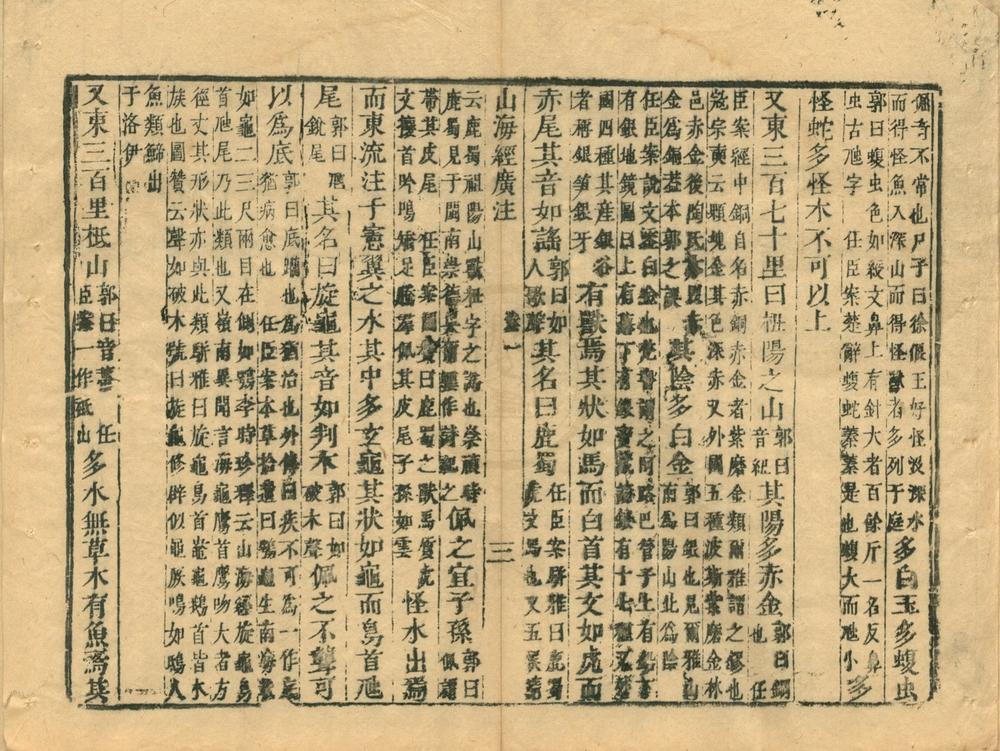 偏奇不常也尸子曰徐偃王好怪沒深水
而得怪魚入深山而得怪獸者多列于庭
多白玉多蝮虫
郭曰蝮虫色如綬文鼻上有針大者百餘斤一名反鼻
虫古虺字 任臣案楚辭蝮蛇蓁蓁是也蝮大而虺小
多
怪蛇多怪木不可以上
又東三百七十里曰杻陽之山
郭曰
音紐
其陽多赤金
郭曰銅
也 任
臣案經中銅自名赤銅赤金者紫磨金類爾雅謂之鏐也
寇宗奭云顆塊金其色深赤又外國五種波斯紫磨金林
邑赤金後陶氏
金爲銅蓋本郭之誤
其陰多白金
郭曰銀也見爾雅山
南爲陽山北爲陰
任臣案說文鋈白金也
管子上有鉛
有銀地鏡圖曰上有
下有銀
有十七種又
國四種其産銀
者稱銀笋銀牙
有獸焉其狀如馬而白首其文如虎而
赤尾其音如謠
郭曰如
人歌聲
其名曰鹿蜀
任臣案駢雅曰鹿蜀
虎文馬也又五
山海經廣注
卷一
三
云鹿蜀杻陽山獸杻字之譌也崇禎時
鹿蜀見于閩南崇德吳爾壎作詩紀之
佩之宜子孫
郭曰
佩謂
帶其皮尾 任臣案圖贊曰鹿蜀之獸馬質虎
文攘首吟鳴矯足騰羣佩其皮尾子孫如雲
怪水出焉
而東流注于憲翼之水其中多玄龜其狀如龜而鳥首虺
尾
郭曰虺
尾銳
其名曰旋龜其音如判木
郭曰如
破木聲
佩之不聾可
以爲底
郭曰底躪也爲猶治也外傳曰疾不可爲一作底
猶病愈也 任臣案本草拾遺曰鶚龜生南海狀
如龜二三尺兩目在側如鶚李時珍釋云山海經旋龜鳥
首虺尾乃此類也又嶺南異聞言海龜鷹首鷹吻大者方
徑丈其形狀亦與此類駢雅曰旋龜鳥首鼈龜鵝首皆水
族也圖贊云聲如破木號曰旋龜修辟似龜厥鳴如鴟人
魚類鯑出
于洛伊
又東三百里柢山
郭曰音蔕 任
臣案一作祇山
多水無草木有魚焉其